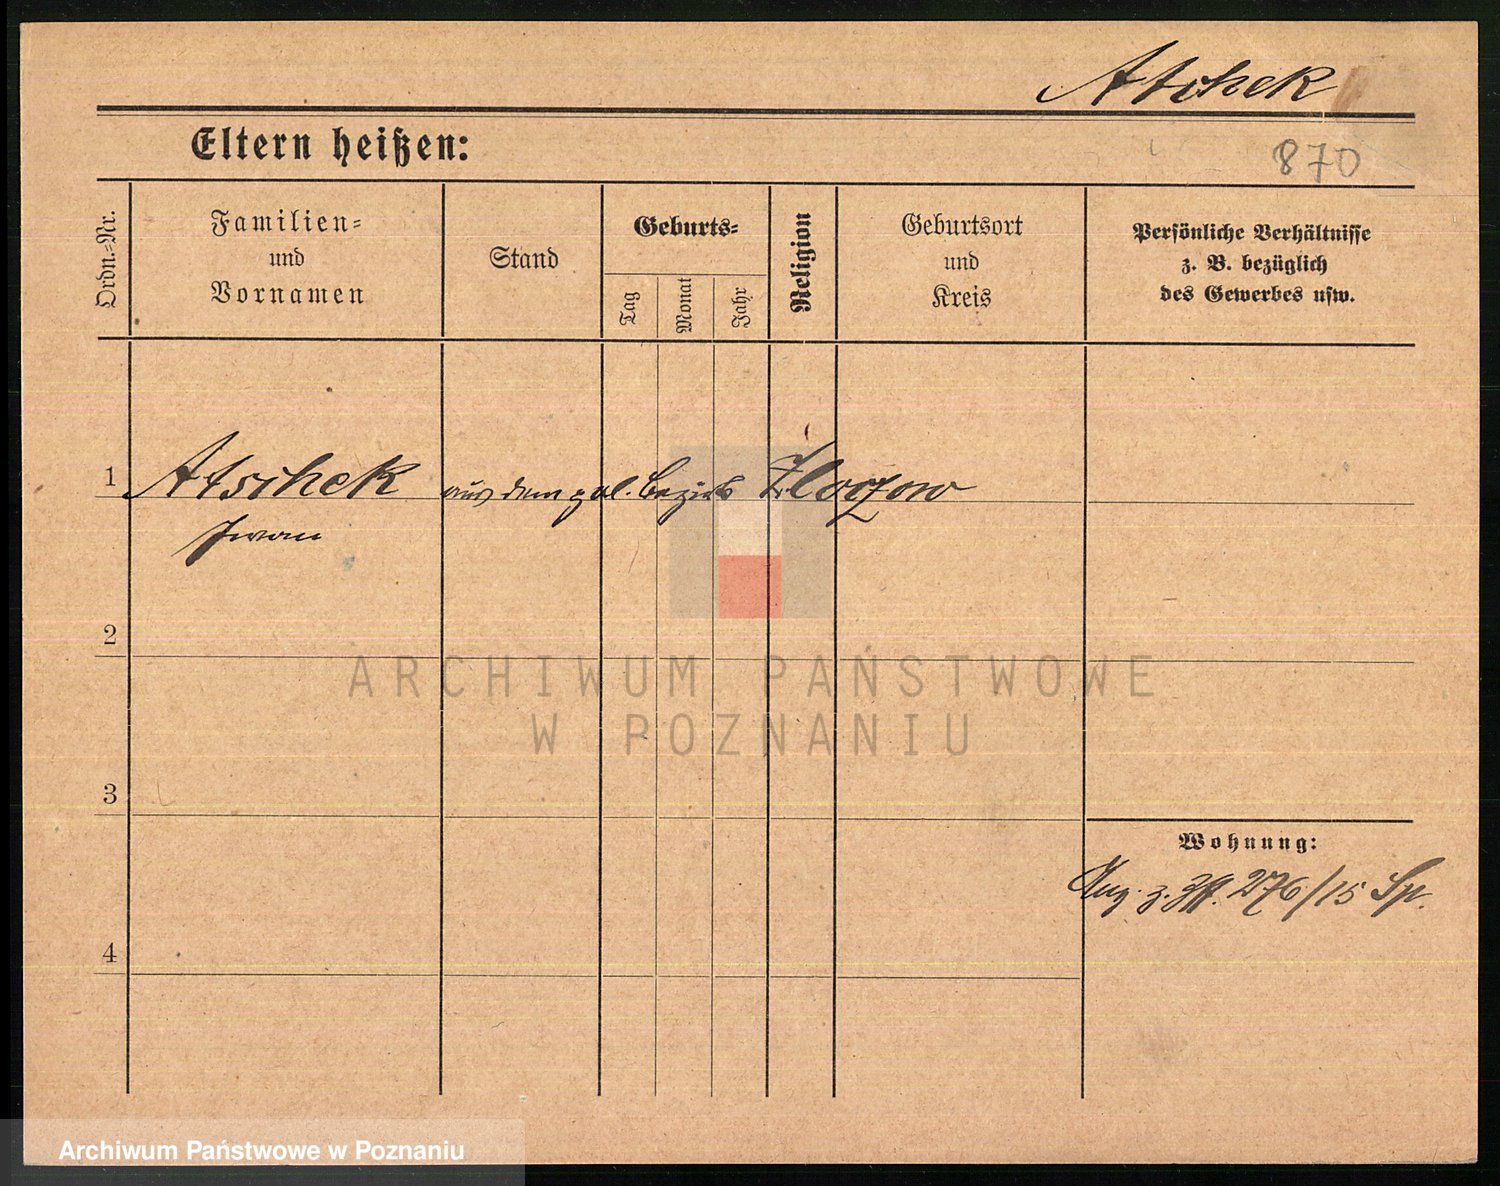 Atschek
Eltern heißen:
870
Ordn.-Nr.
Familien-
und
Vornamen
Stand
Geburts-
Tag
Monat
Jahr
Religion
Geburtsort
und
Kreis
Persönliche Verhältnisse
z. B. bezüglich
des Gewerbes usw.
1
Atschek aus dem gal. Bezirk Zloczow
Iwan
2
ARCHIWUM PAŃSTWOWE
W POZNANIU
3
Wohnung:
z. 276/15 Sp.
4
Archiwum Państwowe w Poznaniu